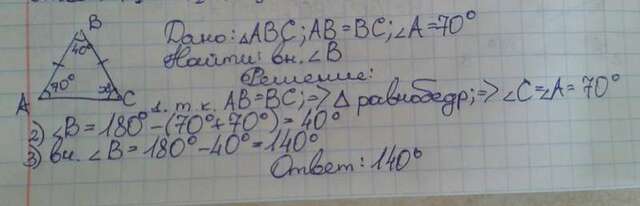 B
40°
70°
x
A
C
Дано: △ABC; AB=BC; ∠A=70°
Найти: вн. ∠B
Решение:
1. т.к. AB=BC; => △ равнобедр; => ∠C=∠A=70°
2) ∠B=180°-(70°+70°)=40°
3) вн. ∠B=180°-40°=140°
Ответ: 140°